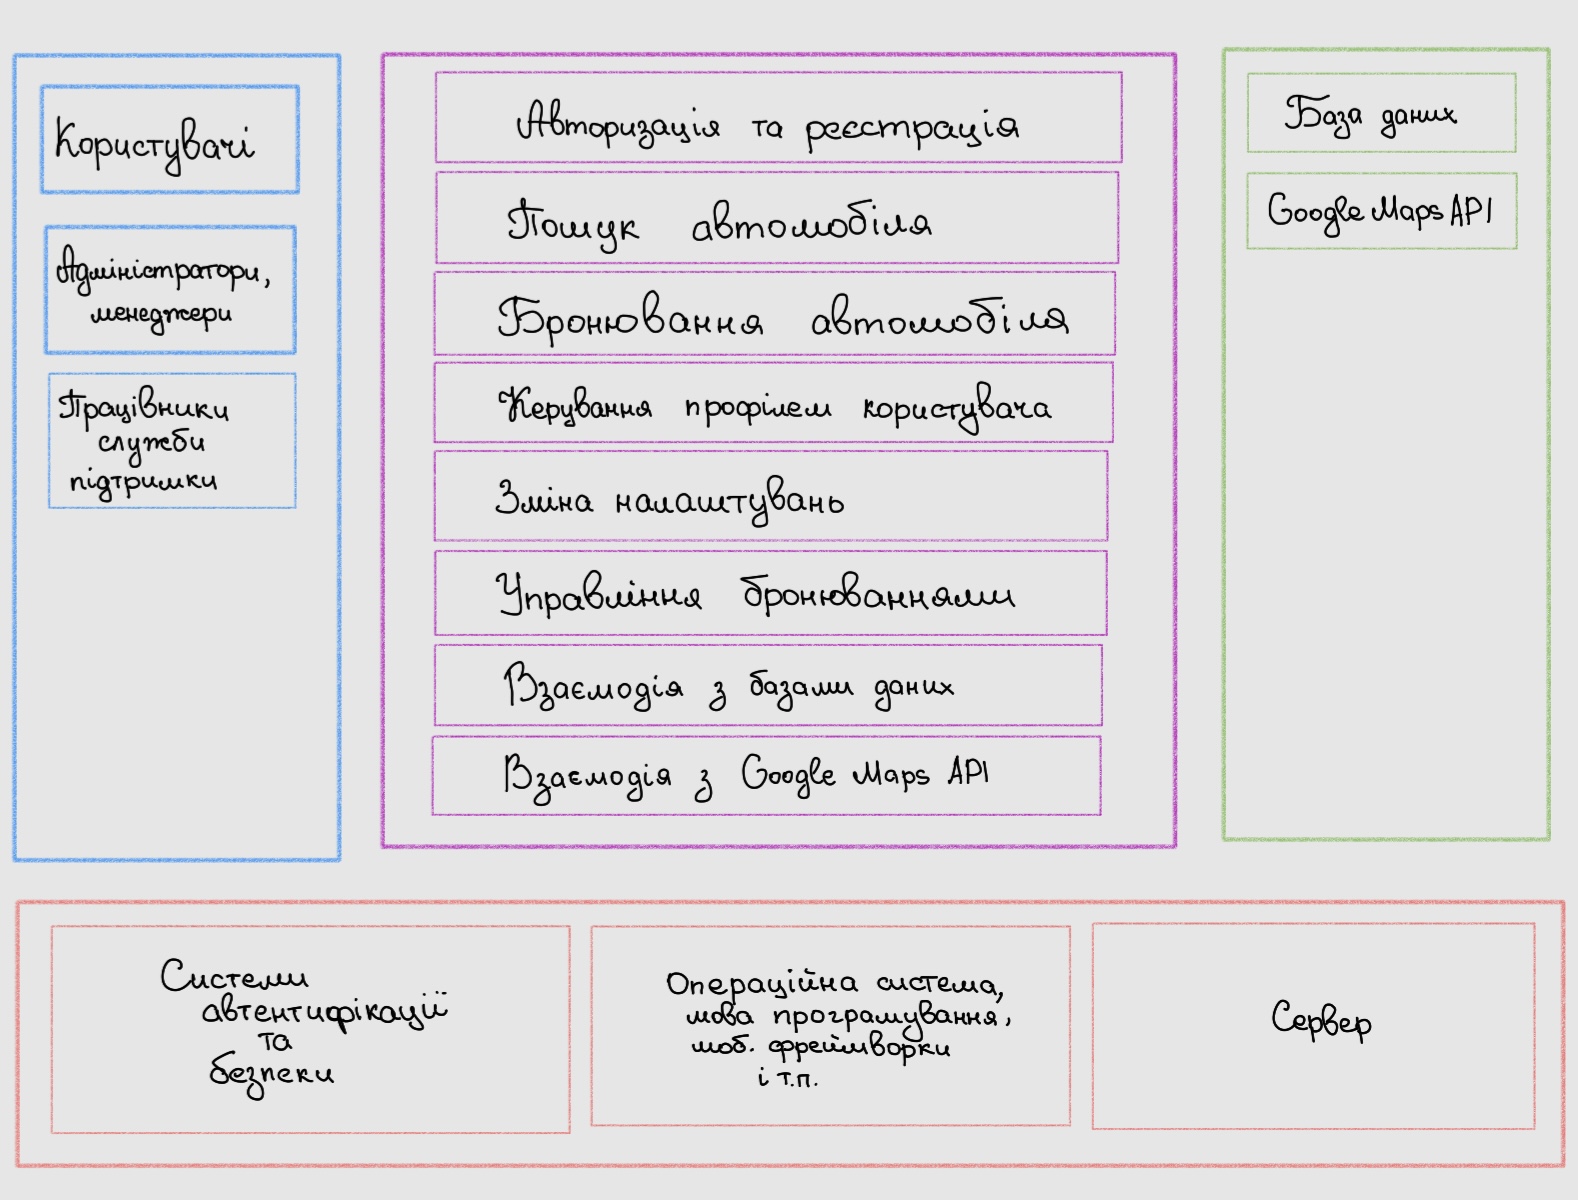 Користувачі
Адміністратори,
менеджери
Працівники
служби
підтримки
Авторизація та реєстрація
Пошук автомобіля
Бронювання автомобіля
Керування профілем користувача
Зміна налаштувань
Управління бронюваннями
Взаємодія з базами даних
Взаємодія з Google Maps API
База даних
Google Maps API
Системи
автентифікації
та
безпеки
Операційна система,
мова програмування,
моб. фреймворки
і т.п.
Сервер